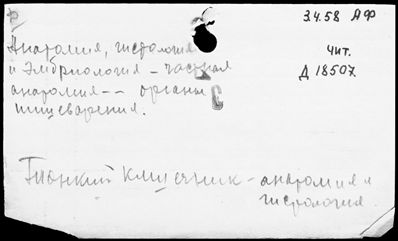 3.4.58 АФ
Анатомия, гистология
и эмбриология – частная
анатомия -- органы
пищеварения.
чит.
Д 18507
Тонкий кишечник – анатомия и
гистология.